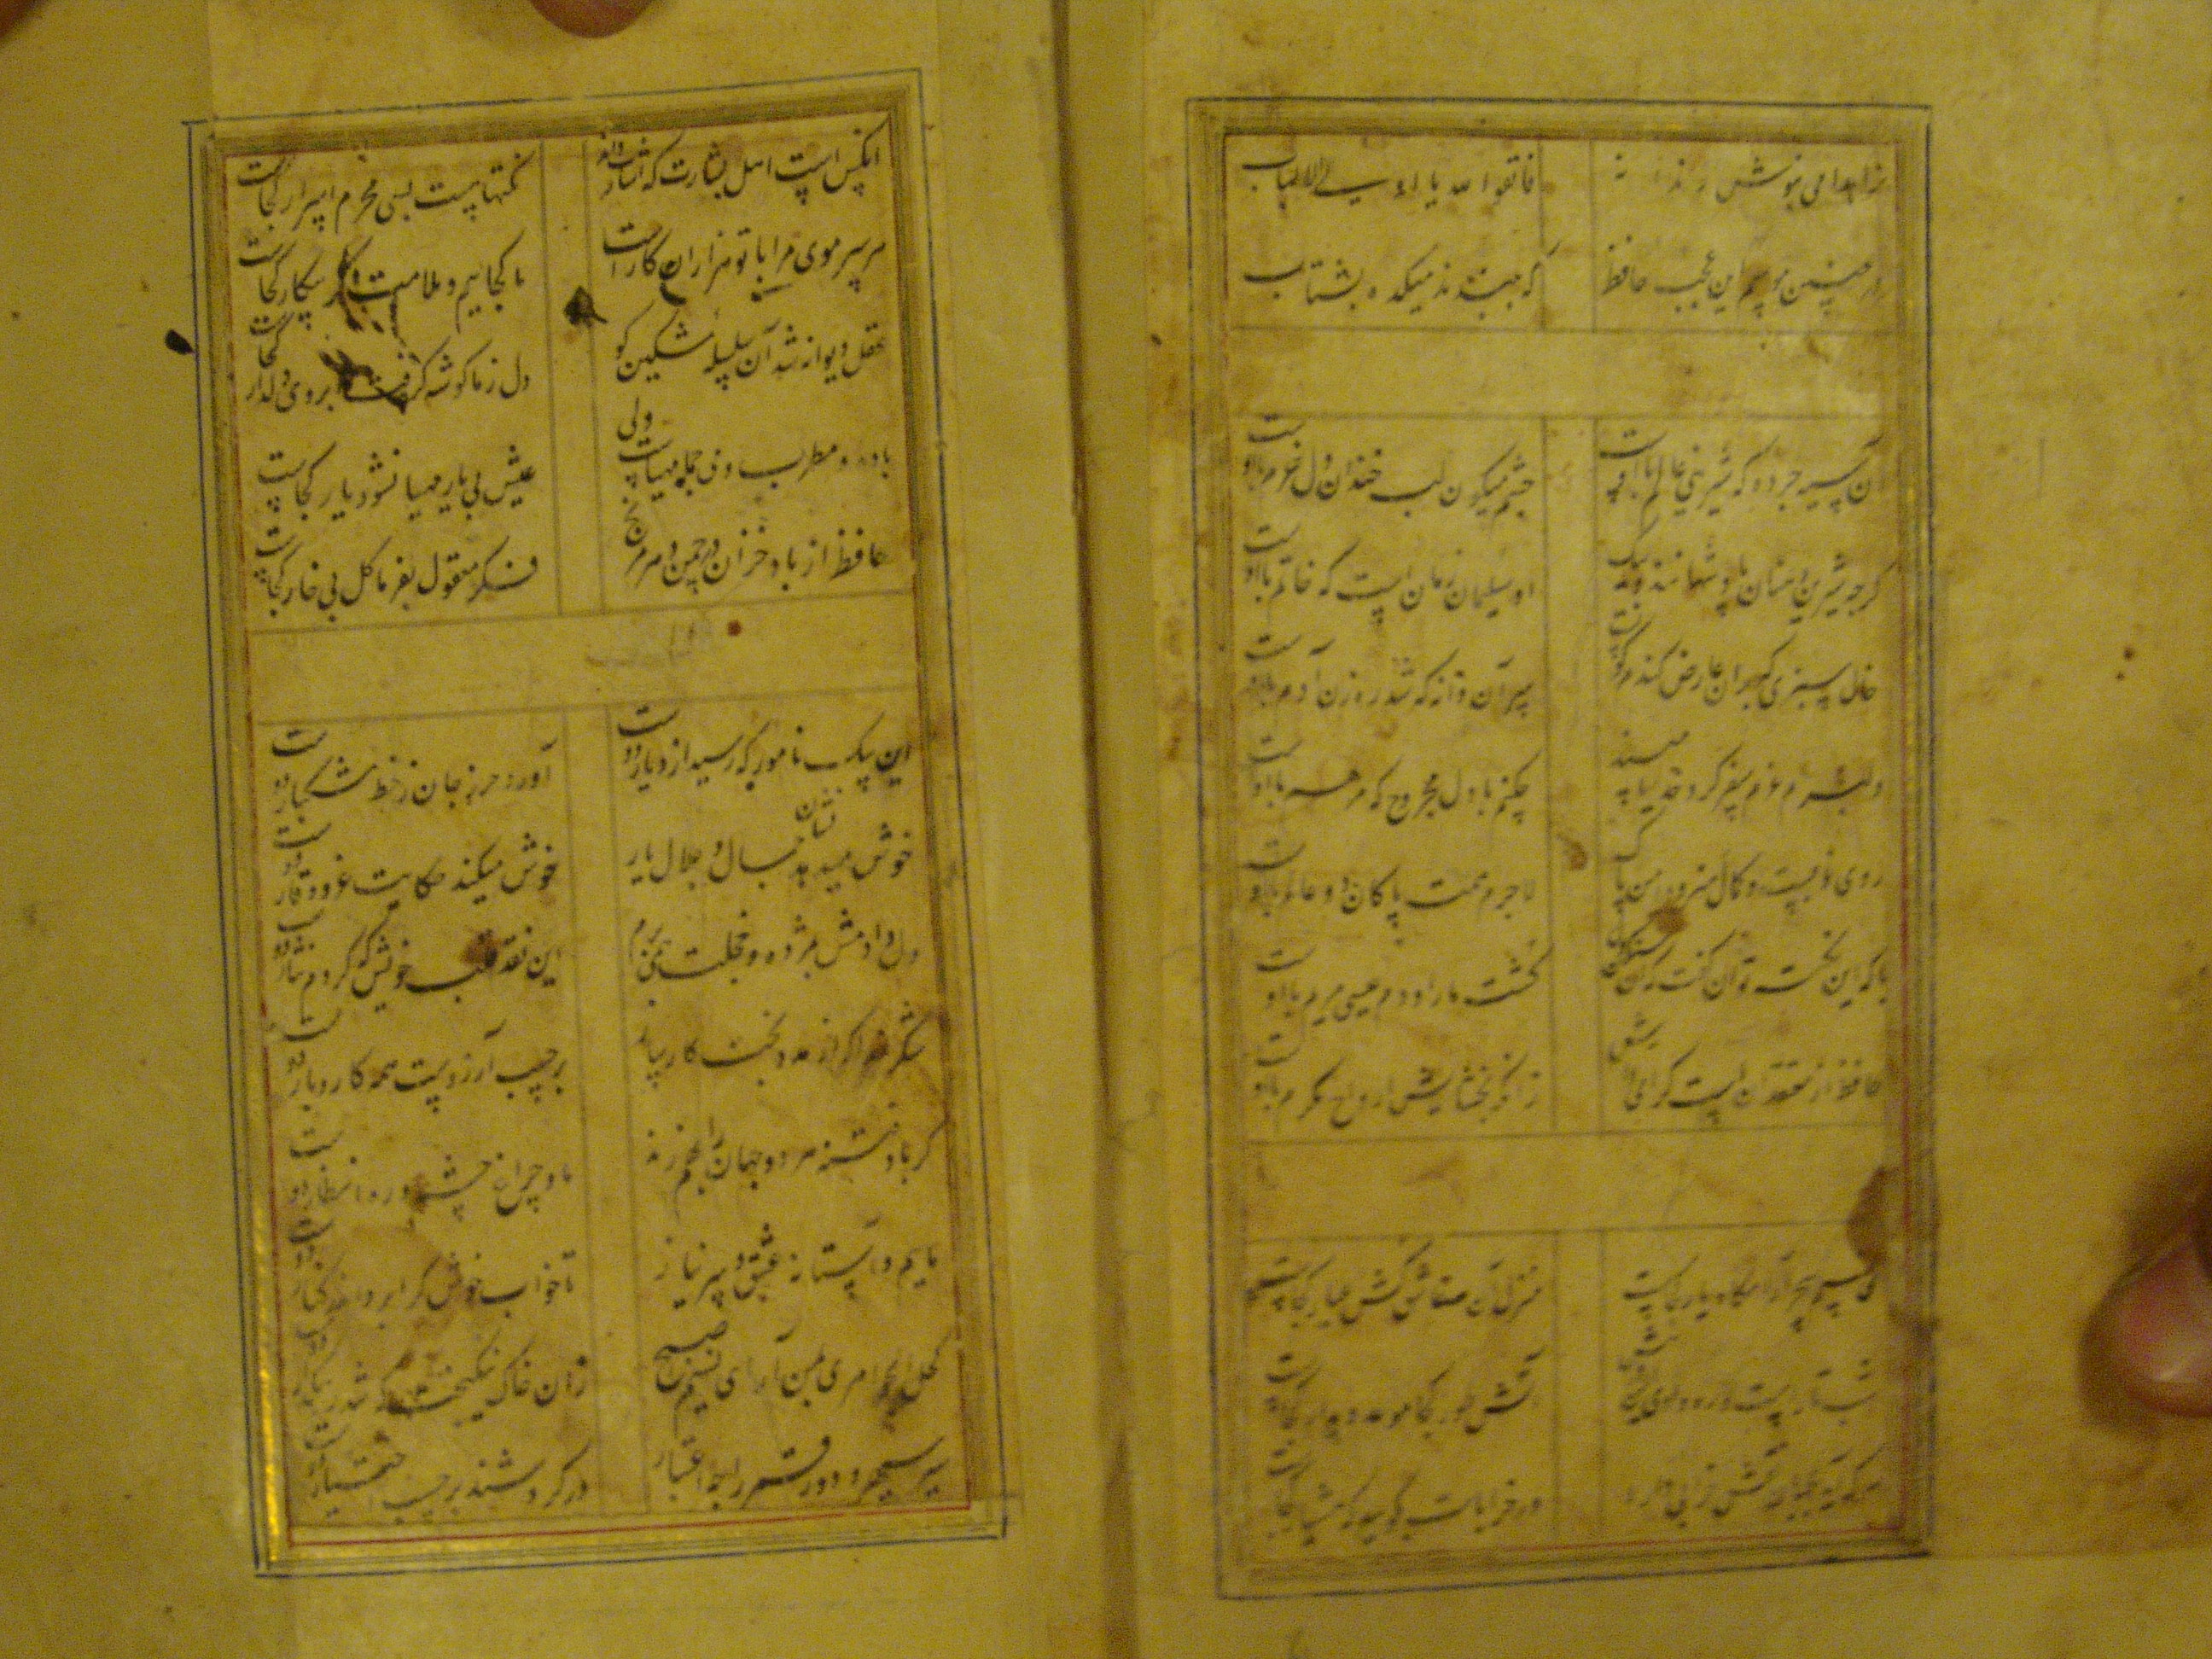 زاهدا می بنوش رندانه
فاتقوا الله یا اولی الالباب
در چنین موسم این عجب حافظ
که ببندند میکده بشتاب
آن سیه چرده که شیرینی عالم با اوست
چشم میگون لب خندان دل خرم با اوست
گرچه شیرین دهنان پادشهانند ولیک
او سلیمان زمان است که خاتم با اوست
خال سبزی که بران عارض گندم گونست
سر آن دانه که شد رهزن آدم با اوست
دلبرم عزم سفر کرد خدا را یاران
چکنم با دل مجروح که مرهم با اوست
روی خوبست و کمال هنر و دامن پاک
لاجرم همت پاکان دو عالم با اوست
با که این نکته توان گفت که آن سنگین دل
کشت ما را و دم عیسی مریم با اوست
حافظ از معتقدان است گرامی
زانکه بخشایش ارواح مکرم با اوست
ای نسیم سحر آرامگه یار کجاست
منزل آن مه عاشق کش عیار کجاست
شب تارست و ره وادی ایمن در پیش
آتش طور کجا موعد دیدار کجاست
هر که آمد بجهان نقش خرابی دارد
در خرابات بگویید که هشیار کجاست
آنکس است اهل بشارت که اشارت داند
نکتها هست بسی محرم اسرار کجاست
هر سر موی مرا با تو هزاران کارست
ما کجاییم و ملامت گر بیکار کجاست
عقل دیوانه شد آن سلسله مشکین کو
دل ز ما گوشه گرفت ابروی دلدار کجاست
باده و مطرب و می جمله مهیاست ولی
عیش بی یار مهیا نشود یار کجاست
حافظ از باد خزان در چمن دهر مرنج
فکر معقول بفرما گل بی خار کجاست
این پیک نامور که رسید از دیار دوست
آورد حرز جان ز خط مشکبار دوست
خوش میدهد نشان جمال و جلال یار
خوش میکند حکایت عز و وقار دوست
دل دادمش بمژده و خجلت همی برم
این نقد قلب خویش که کردم نثار دوست
شکر خدا که از مدد بخت کارساز
بر حسب آرزوست همه کار و بار دوست
گر باد فتنه هر دو جهان را بهم زند
ما و چراغ چشم و ره انتظار دوست
ماییم و آستانه عشق و سر نیاز
تا خواب خوش کرا برد اندر کنار دوست
کحل الجواهری بمن آر ای نسیم صبح
زان خاک نیکبخت که شد رهگذار دوست
سیر سپهر و دور قمر را چه اختیار
در گردشند بر حسب اختیار دوست